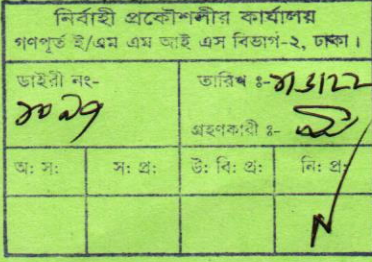 নির্বাহী প্রকৌশলীর কার্যালয়
গণপূর্ত ই/এম এম আই এস বিভাগ-২, ঢাকা।
ডাইরী নং- তারিখ ঃ-
গ্রহণকারী ঃ-
অ: স: স: প্র: উ: বি: প্র: নি: প্র: